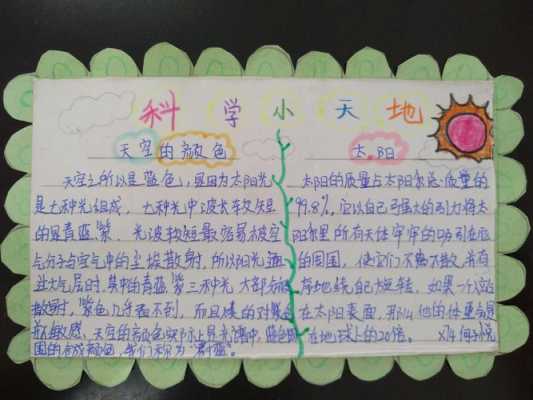 科学小天地
天空的颜色
天空之所以是蓝色，是因为太阳光
是七种光组成，七种光中波长较短
的是青蓝紫，光波较短最容易被空
气分子与空气中的尘埃散射，所以阳光通
过大气层时，其中的青蓝紫三种光大部分被
散射，紫色几乎看不到，而且人的对紫色
敏感，天空的颜色实际上是光谱中蓝色
围的合成颜色，我们称为“青蓝”。
太阳
太阳的质量占太阳系总质量的
99.8%，它以自己强大的引力将太
阳系里所有天体牢牢的吸引在
的周围，使它们不离不散，井
有地绕自己旋转，如果一个
在太阳表面，那么他的体重
在地球上的20倍。